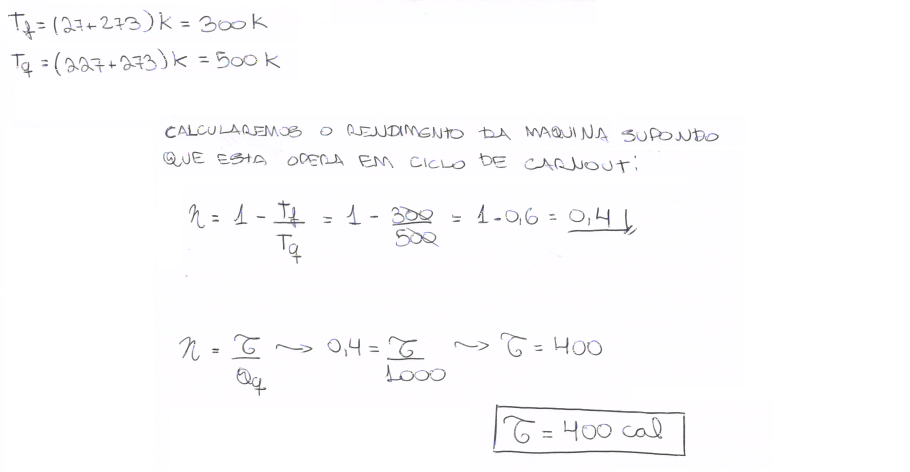 Tf = (27+273)k = 300k
Tq = (227+273)k = 500k
CALCULAREMOS O RENDIMENTO DA MAQUINA SUPONDO
QUE ESTA OPERA EM CICLO DE CARNOUT:
η = 1 - Tf/Tq = 1 - 300/500 = 1-0,6 = 0,4
η = τ/Qq ⇝ 0,4 = τ/1000 ⇝ τ = 400
τ = 400 cal